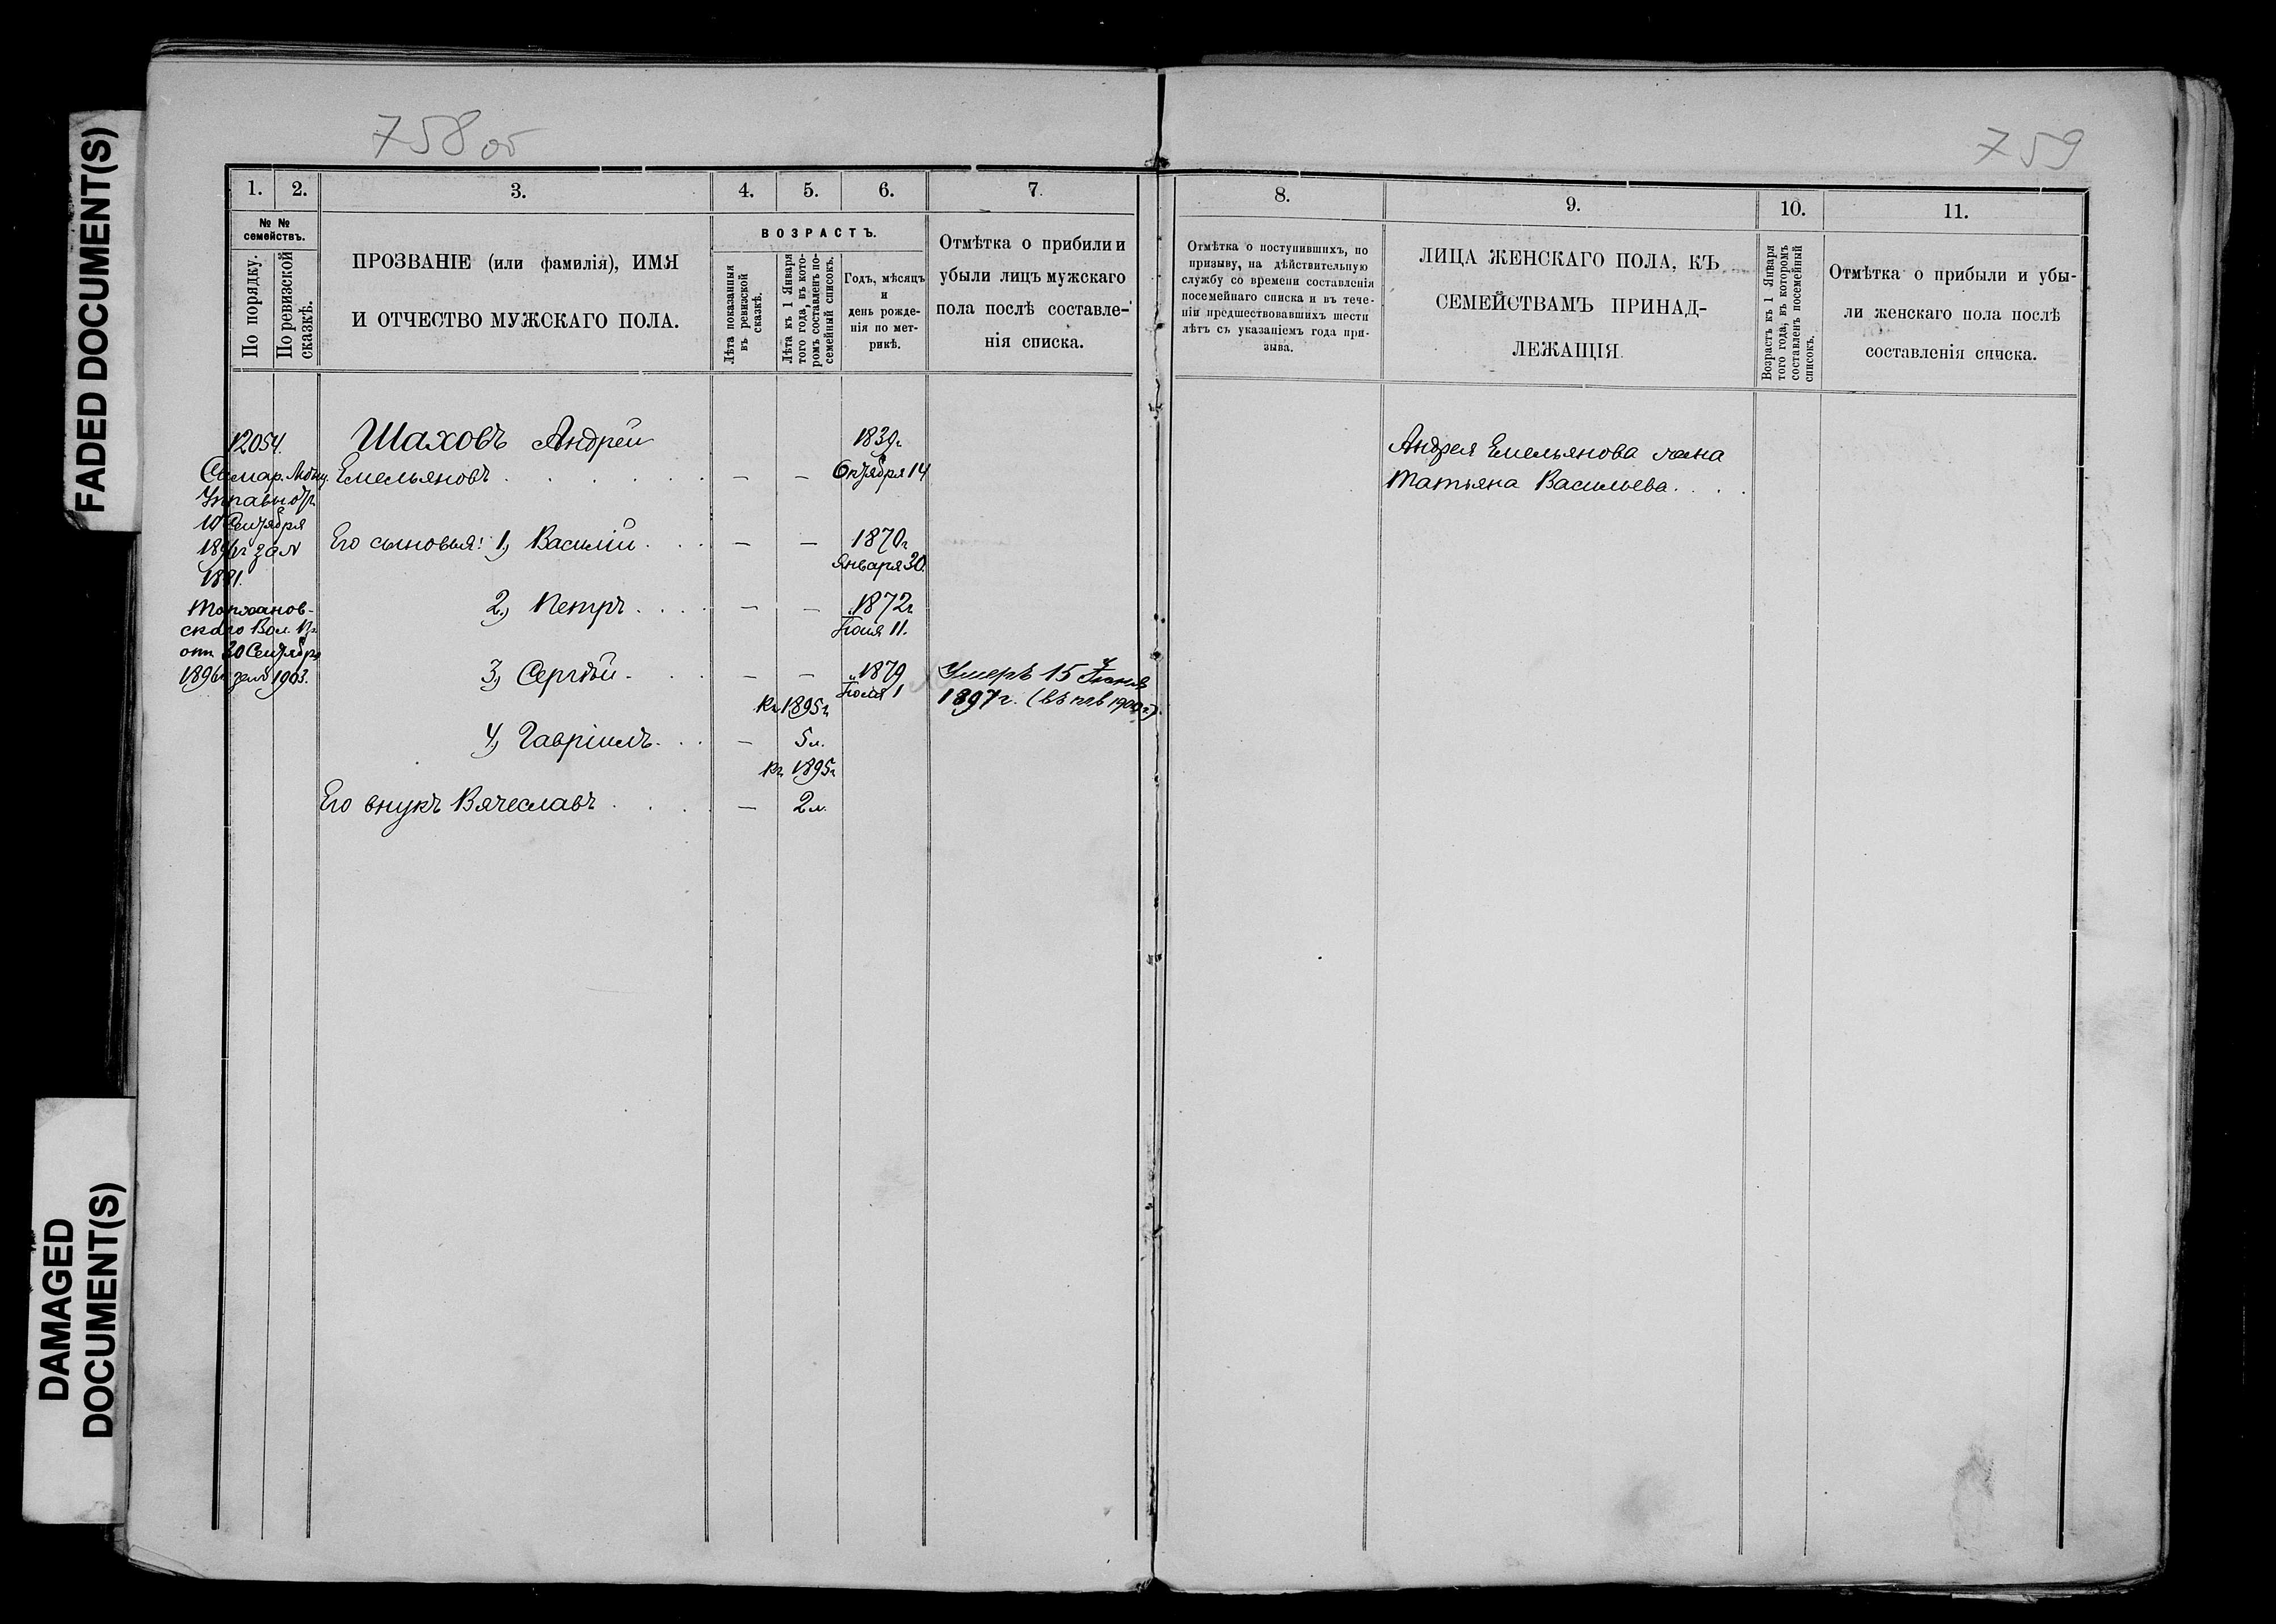 FADED DOCUMENT(S)
DAMAGED
DOCUMENT(S)
758 об
1. 2. 3. 4. 5. 6. 7.
№ №
семействъ.
По порядку.
По ревизской
сказкѣ.
ПРОЗВАНІЕ (или фамилія), ИМЯ
И ОТЧЕСТВО МУЖСКАГО ПОЛА.
ВОЗРАСТЪ.
Лѣта показанныя
въ ревизской
сказкѣ.
Лѣта къ 1 Января
того года, въ кото-
ромъ составленъ по-
семейный списокъ.
Годъ, мѣсяцъ
и
день рожде-
нія по мет-
рикѣ.
Отмѣтка о прибыли и
убыли лицъ мужскаго
пола послѣ составле-
нія списка.
12054.
Самар.
10 Сентября
1896г за №
1881.
скаго Вол. Пр.
отъ 30 Сентября
1896г за № 1903.
Шаховъ Андрей 1839г.
Емельяновъ . . . . . . — — Октября 14
Его сыновья: 1, Василій . . . — — 1870г
Января 30.
2, Петръ . . . . — — 1872г
Іюля 11.
3, Сергѣй . . . — — 1879
Іюля 1
Умеръ 15 Іюня
1897г.
Къ 1895г
4, Гавріилъ . . . — 5л.
Къ 1895г
Его внукъ Вячеславъ . . . — 2л.
759
8. 9. 10. 11.
Отмѣтка о поступившихъ, по
призыву, на дѣйствительную
службу со времени составленія
посемейнаго списка и въ тече-
ніи предшествовавшихъ шести
лѣтъ съ указаніемъ года при-
зыва.
ЛИЦА ЖЕНСКАГО ПОЛА, КЪ
СЕМЕЙСТВАМЪ ПРИНАД-
ЛЕЖАЩІЯ.
Возрастъ къ 1 Января
того года, въ которомъ
составленъ посемейный
списокъ.
Отмѣтка о прибыли и убы-
ли женскаго пола послѣ
составленія списка.
Андрея Емельянова жена
Татьяна Васильева . . .